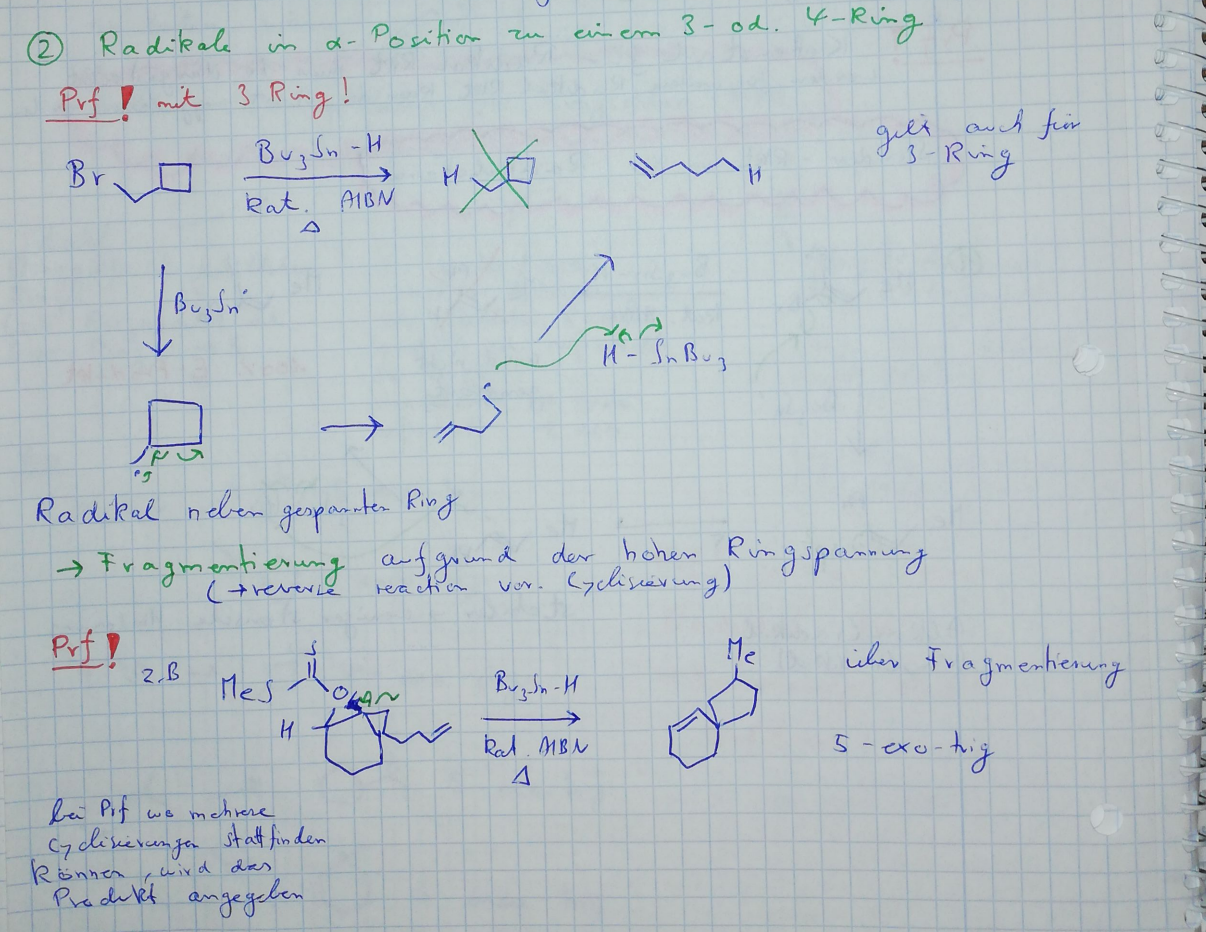 ② Radikale in α-Position zu einem 3- od. 4-Ring
Prf! mit 3 Ring!
gilt auch für
3-Ring
Br
Bu3Sn-H
kat. AIBN
Δ
H
H
Bu3Sn•
H-SnBu3
Radikal neben gespannten Ring
→ Fragmentierung aufgrund der hohen Ringspannung
(→ reverse reaction von Cyclisierung)
Prf!
z.B
MeS
S
O
H
Bu3Sn-H
kat. AIBN
Δ
Me
über Fragmentierung
5-exo-trig
bei Prf wo mehrere
Cyclisierungen stattfinden
können, wird das
Produkt angegeben